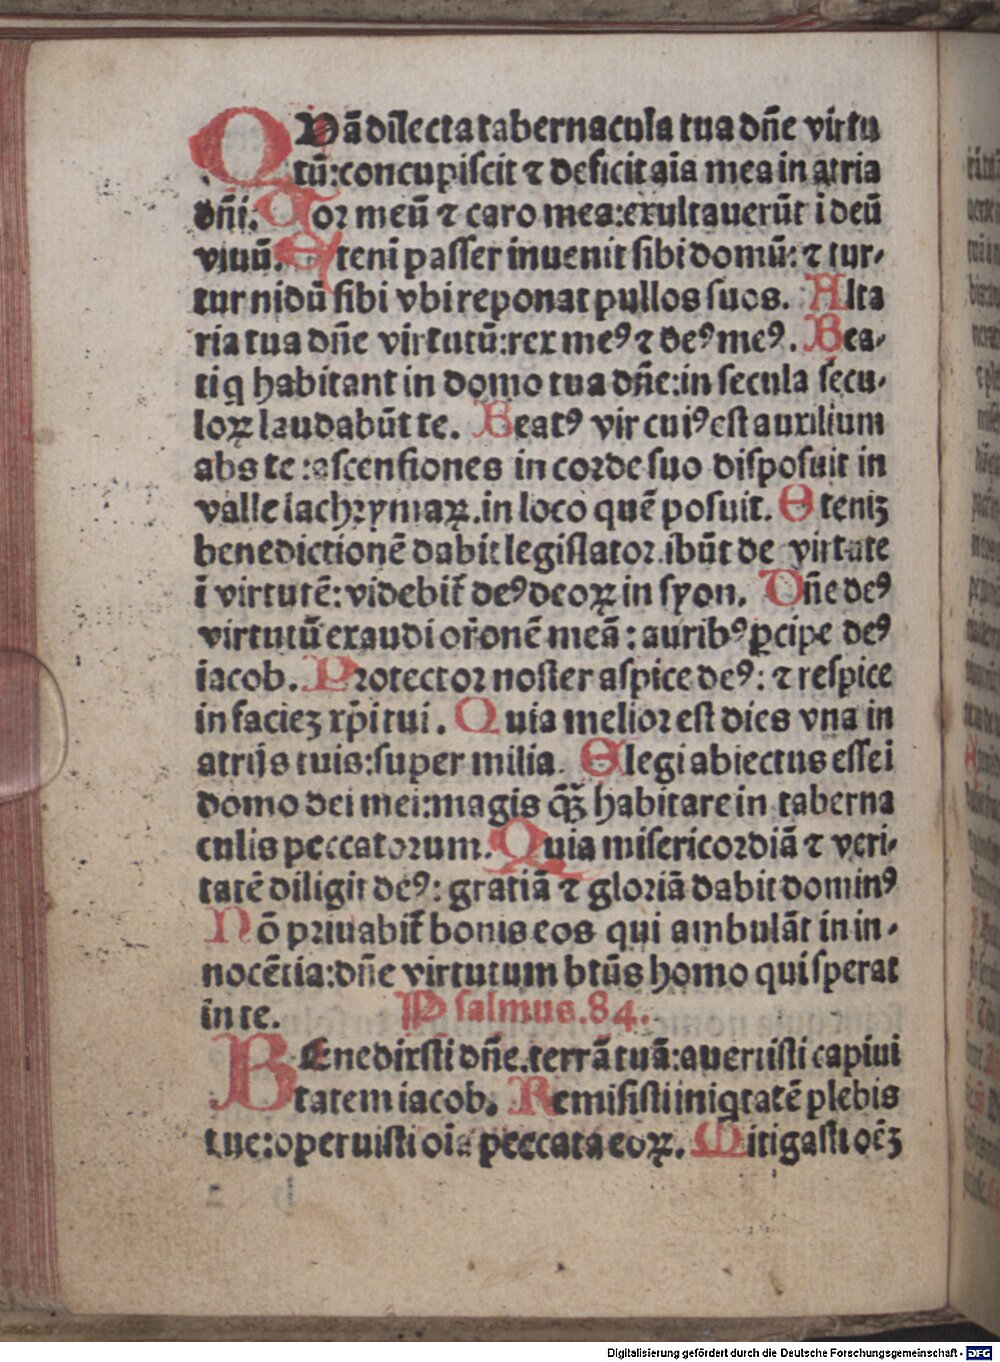 QUã dilecta tabernacula tua dñe virtu
tũ: concupiscit ⁊ deficit aĩa mea in atria
dñi. Cor meũ ⁊ caro mea: exultauerũt i deũ
viuũ. Eteni passer inuenit sibi domũ: ⁊ tur-
tur nidũ sibi vbi reponat pullos suos. Alta
ria tua dñe virtutũ: rex meꝰ ⁊ deꝰ meꝰ. Bea-
ti q habitant in domo tua dñe: in secula secu-
loꝝ laudabũt te. Beatꝰ vir cuiꝰ est auxilium
abs te: ascensiones in corde suo disposuit in
valle lachrymaꝝ. in loco quẽ posuit. Eteniz
benedictionẽ dabit legislator. ibũt de virtute
ĩ virtutẽ: videbit̃ deꝰ deoꝝ in syon. Dñe deꝰ
virtutũ exaudi or̃onẽ meã: auribꝰ ꝑcipe deꝰ
iacob. Protector noster aspice deꝰ: ⁊ respice
in faciez xp̃i tui. Quia melior est dies vna in
atrijs tuis: super milia. Elegi abiectus esse i
domo dei mei: magis q̃ꝫ habitare in taberna
culis peccatorum. Quia misericordiã ⁊ veri-
tatẽ diligit deꝰ: gratiã ⁊ gloriã dabit dominꝰ
Nõ priuabit̃ bonis eos qui ambulãt in in-
nocẽtia: dñe virtutum btũs homo qui sperat
in te. Psalmus. 84.
BEnedixsti dñe. terrã tuã: auertisti captiui
tatem iacob. Remisisti iniqtatẽ plebis
tue: operuisti oĩa peccata eoꝝ. Mitigasti oẽꝫ
Digitalisierung gefördert durch die Deutsche Forschungsgemeinschaft - DFG